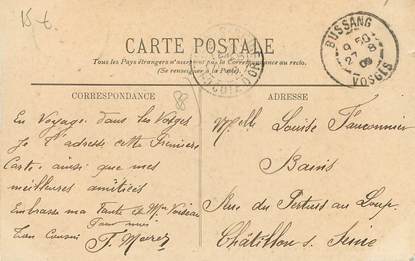 15 €
CARTE POSTALE
Tous les Pays étrangers n'acceptent pas la Correspondance au recto.
(Se renseigner à la Poste)
BUSSANG
9 50
27 - 8
09
VOSGES
CÔTE D'OR
CORRESPONDANCE
88
ADRESSE
En Voyage dans les Vosges
Je t'adresse cette première
Carte ainsi que mes
meilleures amitiées
Embrasse ma Tante et Mme
Pour moi
Ton Cousin
Melle Louise Fauconnier
Bains
Rue du Pertuis au Loup
Châtillon s. Seine